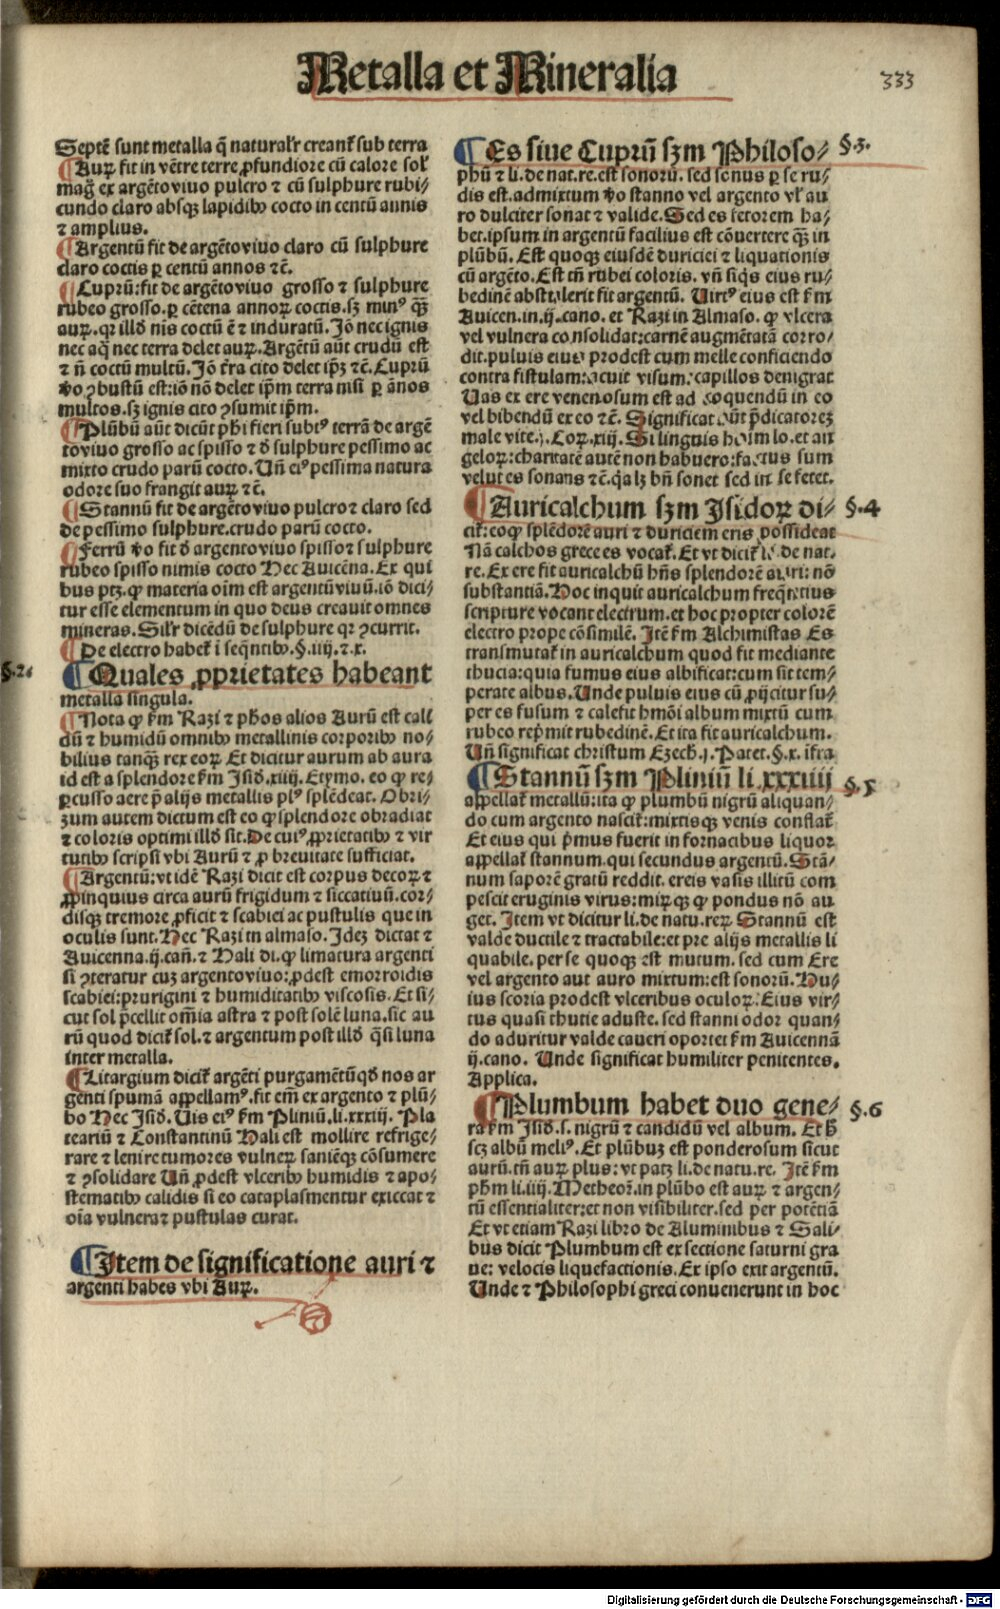 Metalla et Mineralia
333
Septẽ sunt metalla q̃ naturalr̃ creant᷑ sub terra
¶ Auꝝ fit in vẽtre terre ꝓfundiore cũ calore sol᷑
mag̃ ex argẽto viuo pulcro ⁊ cũ sulphure rubi⸗
cundo claro absqꝫ lapidibꝰ cocto in centũ annis
⁊ amplius.
¶ Argentũ fit de argẽto viuo claro cũ sulphure
claro coctis ꝑ centũ annos ⁊c̃.
¶ Cuprũ: fit de argẽto viuo grosso ⁊ sulphure
rubeo grosso. ꝑ cẽtena annoꝝ coctis. sꝫ minꝰ q̃ꝫ
auꝝ. qꝛ illđ nis coctũ ẽ ⁊ induratũ. Jõ nec ignis
nec aq̃ nec terra delet auꝝ. Argẽtũ aũt crudũ est
⁊ ñ coctũ multũ. Jõ t̃ra cito delet ip̃ꝫ ⁊c̃. Cuprũ
ꝟo ꝯbustũ est: iõ nõ delet ip̃m terra nisi ꝑ ãnos
multos. sꝫ ignis cito ꝯsumit ip̃m.
¶ Plũbũ aũt dicũt pħi fieri subtꝰ terrã de argẽ
to viuo grosso ac spisso ⁊ đ sulphure pessimo ac
mixto crudo parũ cocto. Uñ eiꝰ pessima natura
odore suo frangit auꝝ ⁊c̃.
¶ Stannũ fit de argẽto viuo pulcro ⁊ claro sed
de pessimo sulphure. crudo parũ cocto.
¶ Ferrũ ꝟo fit đ argento viuo spisso ⁊ sulphure
rubeo spisso nimis cocto Hec Auicẽna. Ex qui
bus ptꝫ. ꝙ materia oĩm est argentũ viuũ. iõ dici⸗
tur esse elementum in quo deus creauit omnes
mineras. Silr̃ dicẽdũ de sulphure qꝛ ꝯcurrit.
¶ De electro habet᷑ ĩ seq̃ntibꝰ. §. iiij. ⁊. x.
§.2.
¶ Quales ꝓprietates habeant
metalla singula.
¶ Nota ꝙ ẜm Razi ⁊ pħos alios Aurũ est cali
dũ ⁊ humidũ omnibꝰ metallinis corporibꝰ no⸗
bilius tanqꝫ rex eoꝝ. Et dicitur aurum ab aura
id est a splendore ẜm Jsiđ. xiiij. Etymo. eo ꝙ re⸗
ꝑcusso aere p̃ alijs metallis plꝰ splẽdeat. Obri⸗
zum autem dictum est eo ꝙ splendore obradiat
⁊ coloris optimi illđ sit. De cuiꝰ ꝓprietatibꝰ ⁊ vir
tutibꝰ scripsi vbi Aurũ ⁊ ꝓ breuitate sufficiat.
¶ Argentũ: vt idẽ Razi dicit est corpus decoꝝ ⁊
ꝓpinquius circa aurũ frigidum ⁊ siccatiuũ. cor⸗
disqꝫ tremore ꝓficit ⁊ scabiei ac pustulis que in
oculis sunt. Hec Razi in almaso. Jdeꝫ dictat ⁊
Auicenna. ij. cañ. ⁊ Hali di. ꝙ limatura argenti
si ꝯteratur cuꝫ argento viuo: ꝓdest emorroidis
scabiei: prurigini ⁊ humiditatibꝰ viscosis. Et si⸗
cut sol p̃cellit om̃ia astra ⁊ post solẽ luna. sic au
rũ quod dicit᷑ sol. ⁊ argentum post illđ q̃si luna
inter metalla.
¶ Litargium dicit᷑ argẽti purgamẽtũ qđ nos ar
genti spumã appellamꝰ. fit em̃ ex argento ⁊ plũ⸗
bo Hec Jsiđ. Uis eiꝰ ẜm Pliniũ. li. xxxiij. Pla
teariũ ⁊ Constantinũ Hali est mollire refrige⸗
rare ⁊ lenire tumores vulneꝝ saniẽqꝫ cõsumere
⁊ ꝯsolidare Uñ ꝓdest vlceribꝰ humidis ⁊ apo⸗
stematibꝰ calidis si eo cataplasmentur exiccat ⁊
oĩa vulnera ⁊ pustulas curat.
¶ Jtem de significatione auri ⁊
argenti habes vbi Auꝝ.
¶ Es siue Cuprũ sꝫm Philoso⸗
§.3.
phũ ⁊ li. de nat. re. est sonorũ. sed sonus ꝑ se ru⸗
dis est. admixtum ꝟo stanno vel argento vl᷑ au
ro dulciter sonat ⁊ valide. Sed es fetorem ha⸗
bet. ipsum in argentũ facilius est cõuertere q̃ꝫ in
plũbũ. Est quoqꝫ eiusdẽ duriciei ⁊ liquationis
cũ argẽto. Est tñ rubei coloris. vñ siq̃s eius ru⸗
bedinẽ abstulerit fit argentũ. Uirtꝰ eius est ẜm
Auicen. in. ij. cano. et Razi in Almaso. ꝙ vlcera
vel vulnera consolidat: carnẽ augmẽtatã corro⸗
dit. puluis eius prodest cum melle conficiendo
contra fistulam: acuit visum: capillos denigrat
Uas ex ere venenosum est ad coquendũ in eo
vel bibendũ ex eo ⁊c̃. Significat aũt p̃dicatoreꝫ
male vite. j. Coꝝ. xiij. Si linguis hoim lo. et an
geloꝝ: charitatẽ autẽ non habuero: factus sum
velut es sonans ⁊c̃. q̃ lꝫ bñ sonet sed in se fetet.
¶ Auricalchum sꝫm Jsidoꝝ di⸗
§.4
cit᷑: eo ꝙ splẽdorẽ auri ⁊ duriciem eris possideat
Nã calchos grece es vocat᷑. Et vt dicit᷑ li. de nat.
re. Ex ere fit auricalchũ hñs splendorẽ auri: nõ
substantiã. Hoc inquit auricalchum freq̃ntius
scripture vocant electrum. et hoc propter colorẽ
electro prope cõsimilẽ. Jtẽ ẜm Alchimistas Es
transmutat᷑ in auricalchum quod fit mediante
thucia: quia fumus eius albificat: cum sit tem⸗
perate albus. Unde puluis eius cũ ꝓijcitur su⸗
per es fusum ⁊ calefit hmõi album mixtũ cum
rubeo rep̃mit rubedinẽ. Et ita fit auricalchum.
Uñ significat christum Ezech. j. Patet. §. x. ifra
¶ Stannũ sꝫm Pliniũ li. xxxiiij
§.5
appellat᷑ metallũ: ita ꝙ plumbũ nigrũ aliquan⸗
do cum argento nascit᷑: mixtisqꝫ venis conflat᷑
Et eius qui p̃mus fuerit in fornacibus liquor
appellat᷑ stannum. qui secundus argentũ. Stã⸗
num saporẽ gratũ reddit. ereis vasis illitũ com
pescit eruginis virus: miꝝ qꝫ ꝙ pondus nõ au
get. Jtem vt dicitur li. de natu. reꝝ. Stannũ est
valde ductile ⁊ tractabile: et pre alijs metallis li
quabile. per se quoqꝫ est mutum. sed cum Ere
vel argento aut auro mixtum: est sonorũ. Hu⸗
ius scoria prodest vlceribus oculoꝝ. Eius vir⸗
tus quasi thutie aduste. sed stanni odor quan⸗
do aduritur valde caueri oportet ẜm Auicennã
ij. cano. Unde significat humiliter penitentes.
Applica.
¶ Plumbum habet duo gene⸗
§.6
ra ẜm Jsiđ. s. nigrũ ⁊ candidũ vel album. Et ħ
scꝫ albũ meliꝰ. Et plũbuꝫ est ponderosum sicut
aurũ. tñ auꝝ plus: vt patꝫ li. de natu. re. Jtẽ ẜm
pħm li. iiij. Metheoꝝ. in plũbo est auꝝ ⁊ argen⸗
tũ essentialiter: et non visibiliter. sed per potẽtiã
Et vt etiam Razi libro de Aluminibus ⁊ Sali⸗
bus dicit Plumbum est ex sectione saturni gra
ue: velocis liquefactionis. Ex ipso exit argentũ.
Unde ⁊ Philosophi greci conuenerunt in hoc
Digitalisierung gefördert durch die Deutsche Forschungsgemeinschaft - DFG